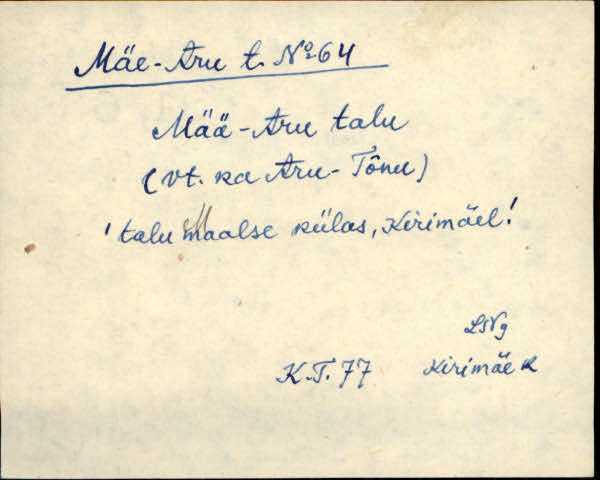 Mäe-Aru t. № 64
Mää-Aru talu
(vt. ka Aru-Tõnu)
'talu Maalse külas, Kirimäel!
LNg
K.T. 77 Kirimäe k